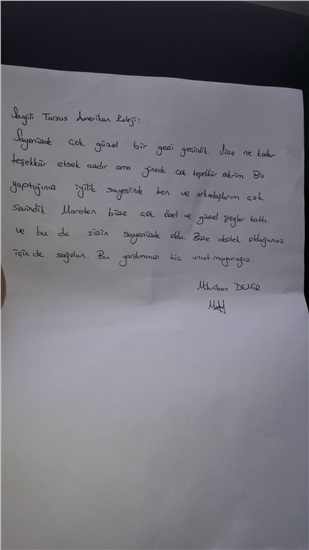 Sevgili Tarsus Amerikan Koleji;
Sayenizde çok güzel bir gezi geçirdik. Size ne kadar
teşekkür etsek azdır ama yinede çok teşekkür ederim. Bu
yaptığınız iyilik sayesinde ben ve arkadaşlarım çok
sevindik. Maraton bize çok özel ve güzel şeyler kattı
ve bu da sizin sayenizde oldu. Bize destek olduğunuz
için de sağolun. Bu yardımınızı hiç unutmayacağız.
Mihriban DEMİR